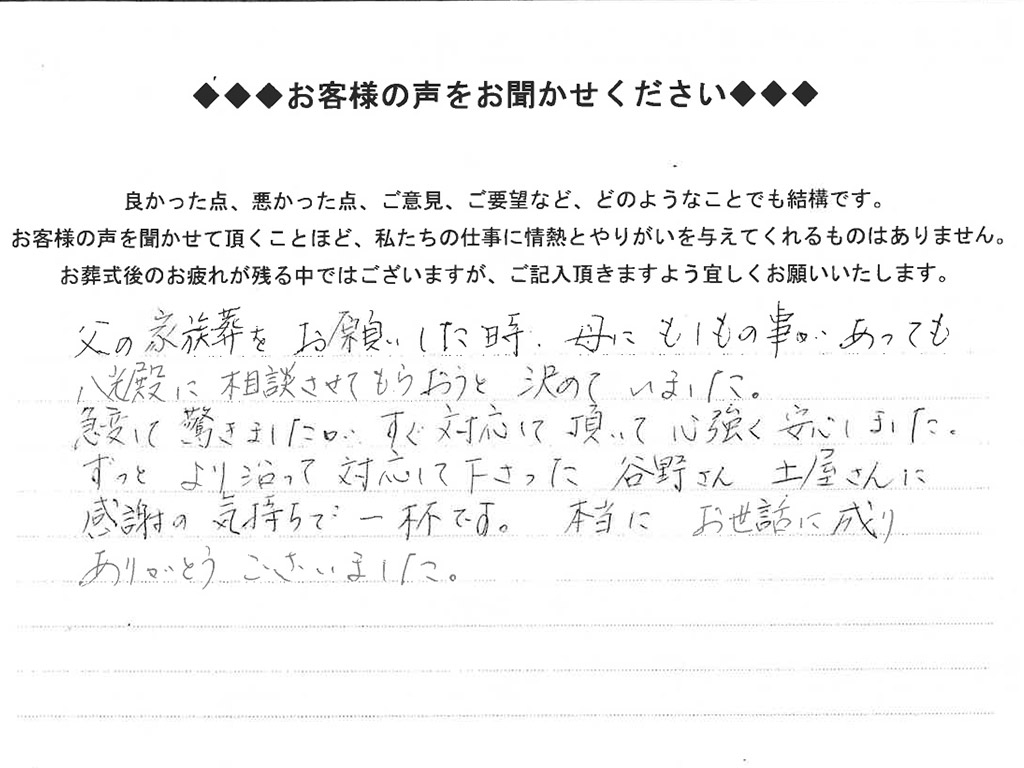 ◆◆◆お客様の声をお聞かせください◆◆◆
良かった点、悪かった点、ご意見、ご要望など、どのようなことでも結構です。
お客様の声を聞かせて頂くことほど、私たちの仕事に情熱とやりがいを与えてくれるものはありません。
お葬式後のお疲れが残る中ではございますが、ご記入頂きますよう宜しくお願いいたします。
父の家族葬をお願いした時、母にもしもの事があっても
八光殿に相談させてもらおうと決めていました。
急変して驚きましたが、すぐ対応して頂いて心強く安心しました。
ずっとより沿って対応して下さった谷野さん土屋さんに
感謝の気持ちで一杯です。本当にお世話に成り
ありがとうございました。